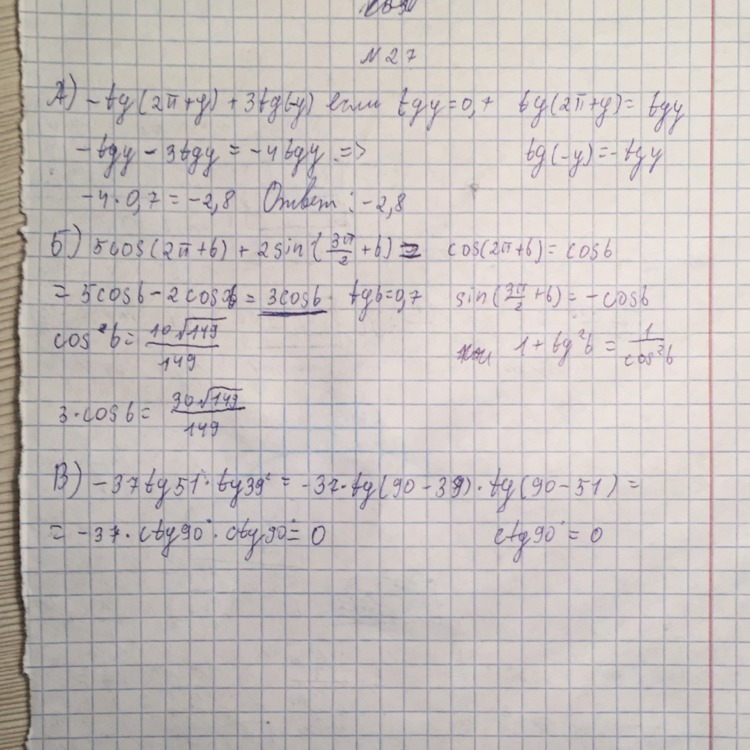 N27
А) -tg(2π+y) + 3tg(-y) если tgy=0,+ tg(2π+y)= tgy
-tgy - 3tgy = -4tgy => tg(-y)=-tgy
-4·0,7 = -2,8 Ответ: -2,8
Б) 5cos(2π+b) + 2sin(3π/2+b) = cos(2π+b) = cosb
= 5cosb - 2cosb = 3cosb · tgb=0,7 sin(3π/2+b) = -cosb
cos²b = 10√149/149 1+tg²b = 1/cos²b
3·cosb = 30√149/149
В) -37tg51°·tg39° = -37·tg(90-39)·tg(90-51) =
= -37·ctg90°·ctg90°= 0 ctg90° = 0